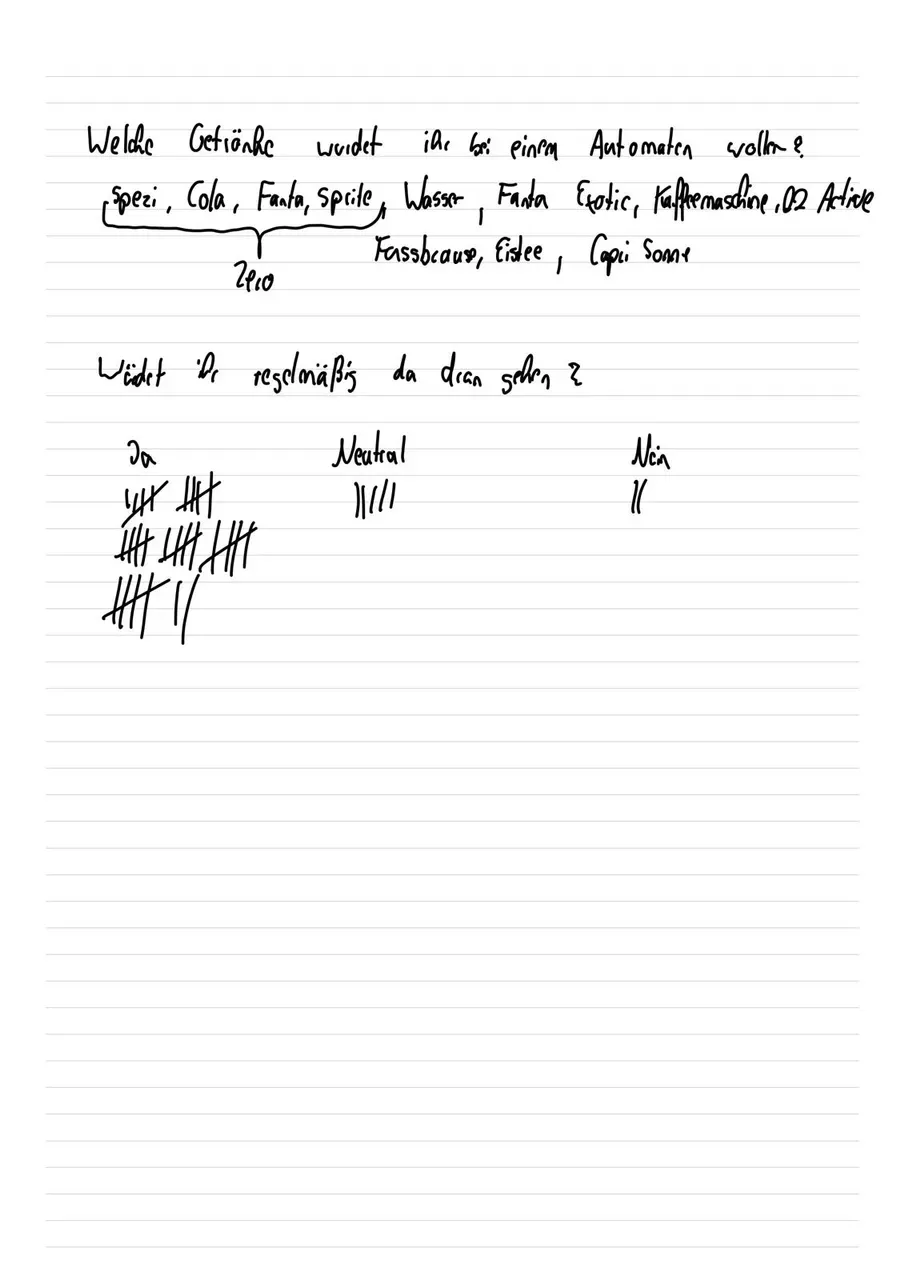 Welche Getränke wurdet ihr bei einem Automaten wollen?
Spezi, Cola, Fanta, Sprite, Wasser, Fanta Exotic, Kaffeemaschine, O2 Active
Fassbrause, Eistee, Capri Sonne
Zero
Würdet ihr regelmäßig da dran gehen?
Ja Neutral Nein